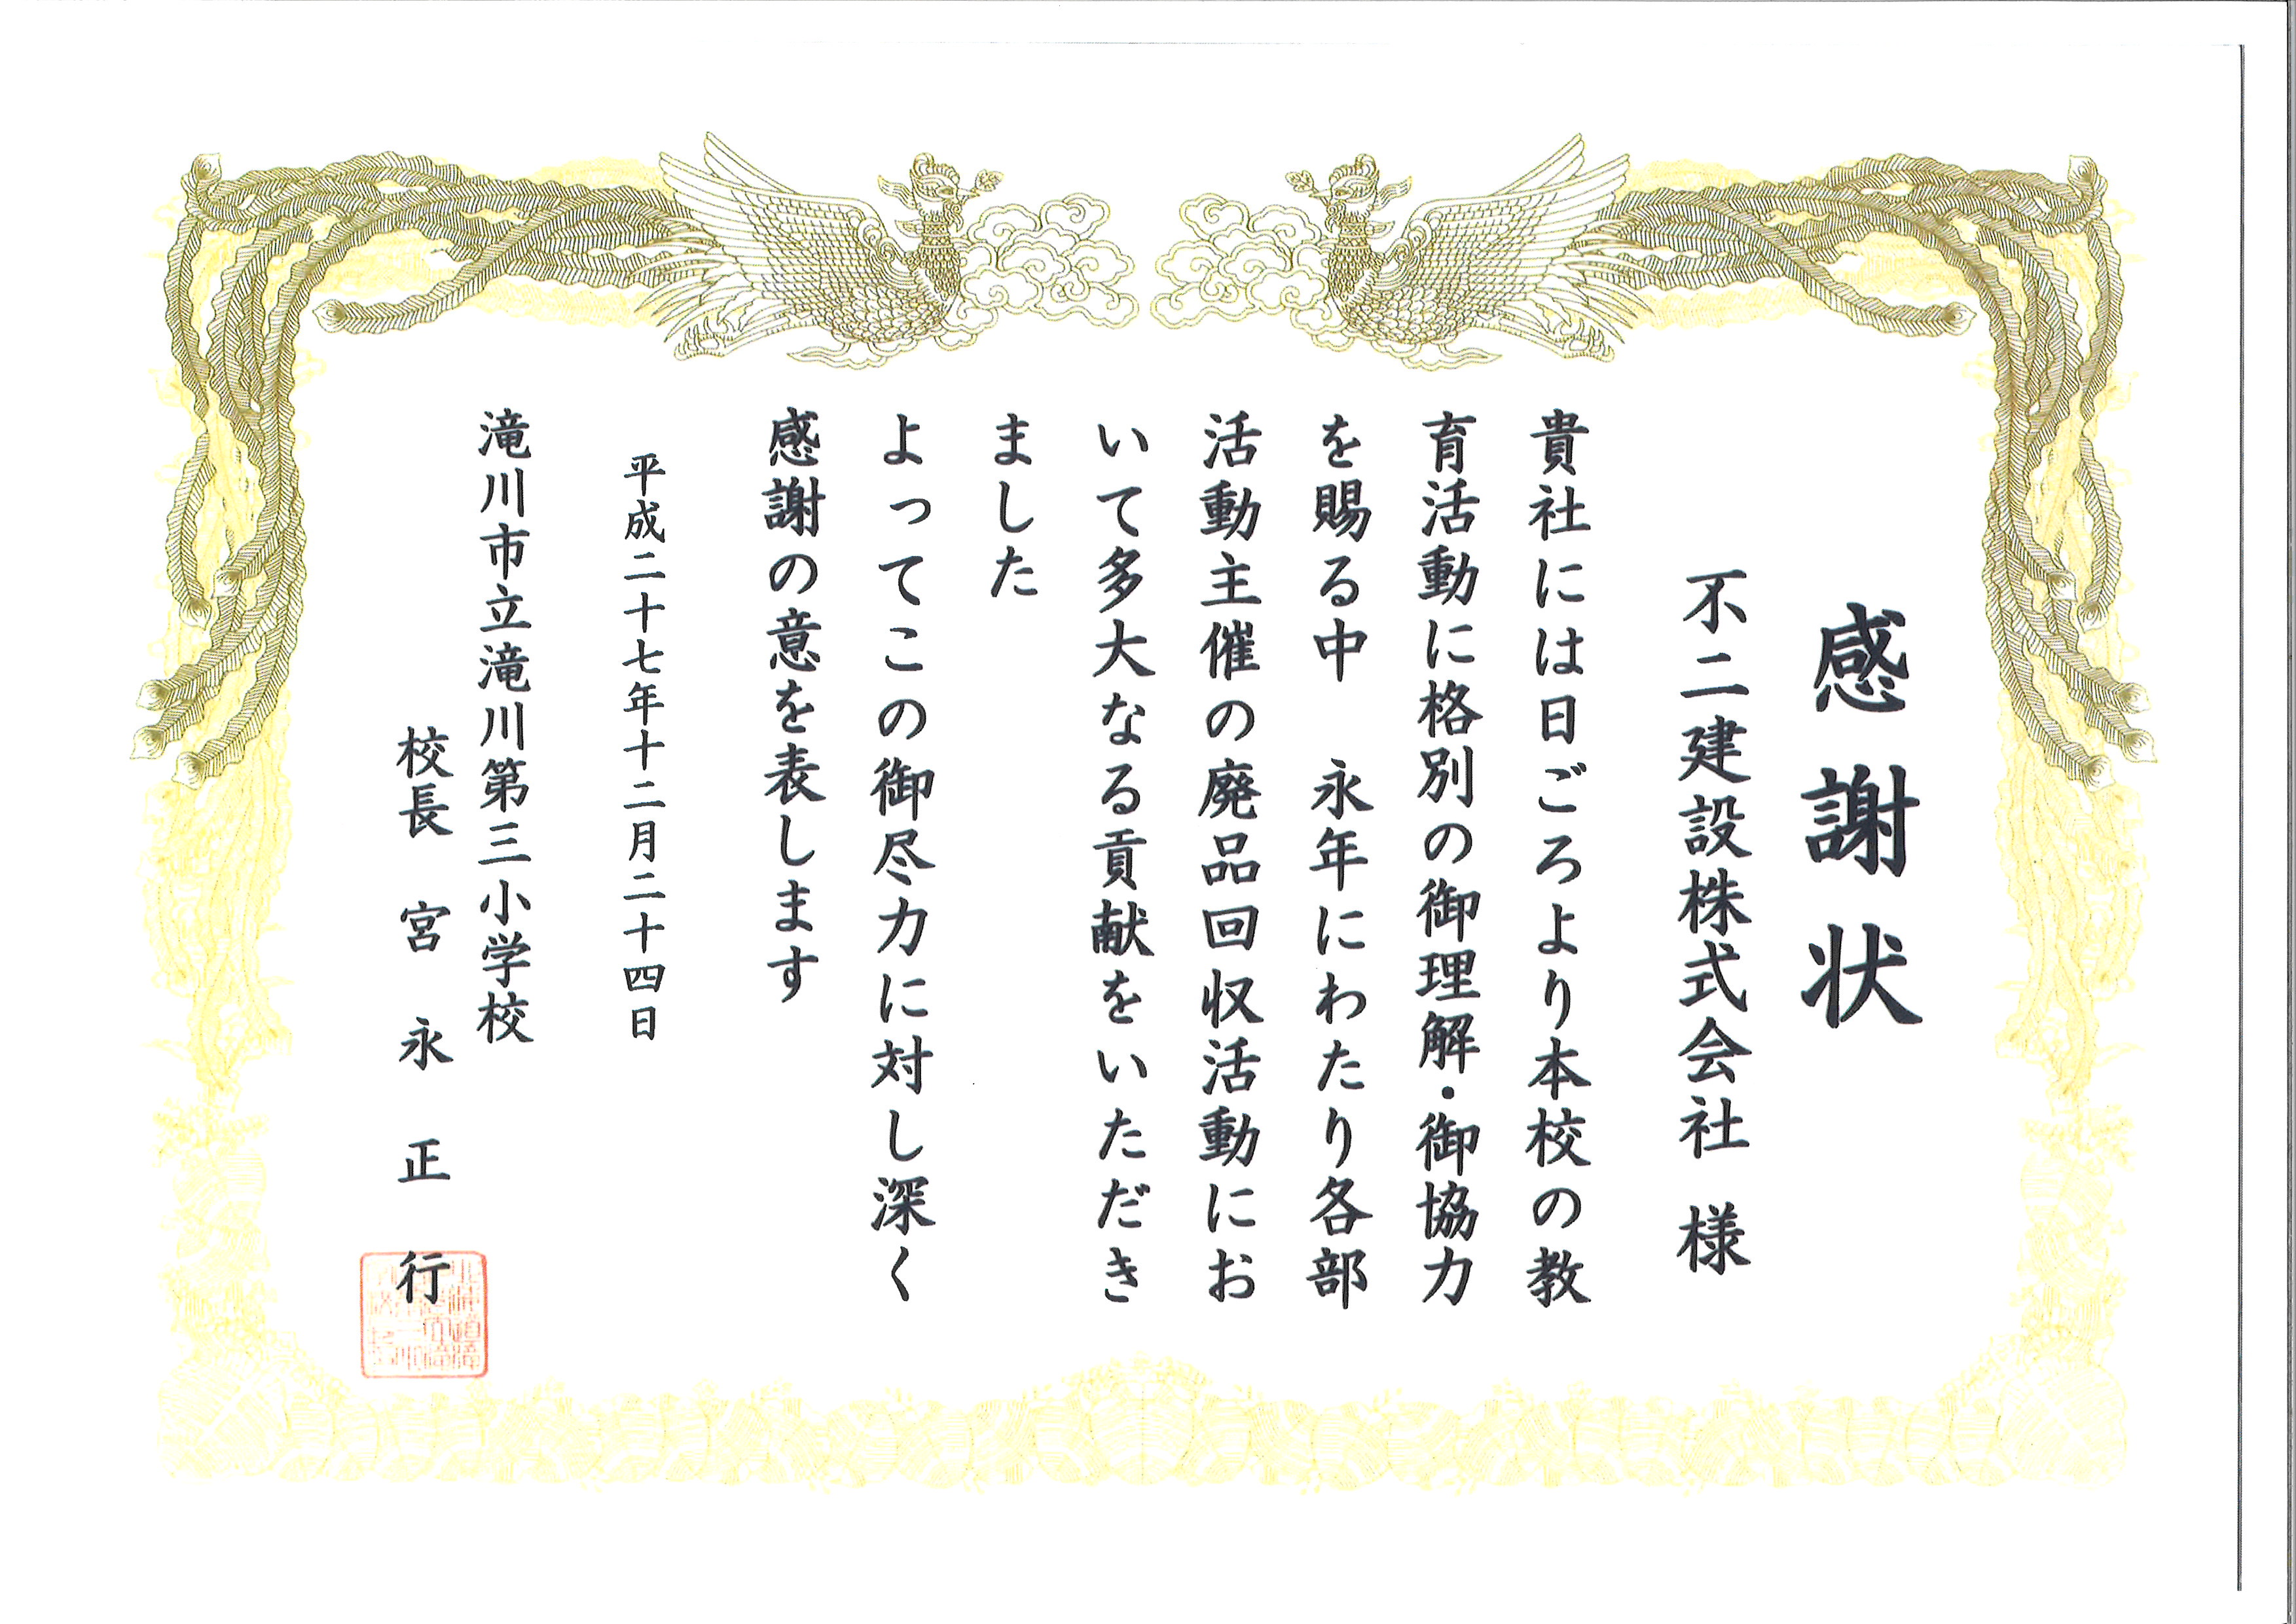 感謝状
不二建設株式会社 様
貴社には日ごろより本校の教
育活動に格別の御理解・御協力
を賜る中 永年にわたり各部
活動主催の廃品回収活動にお
いて多大なる貢献をいただき
ました
よってこの御尽力に対し深く
感謝の意を表します
平成二十七年十二月二十四日
滝川市立滝川第三小学校
校長 宮永正行